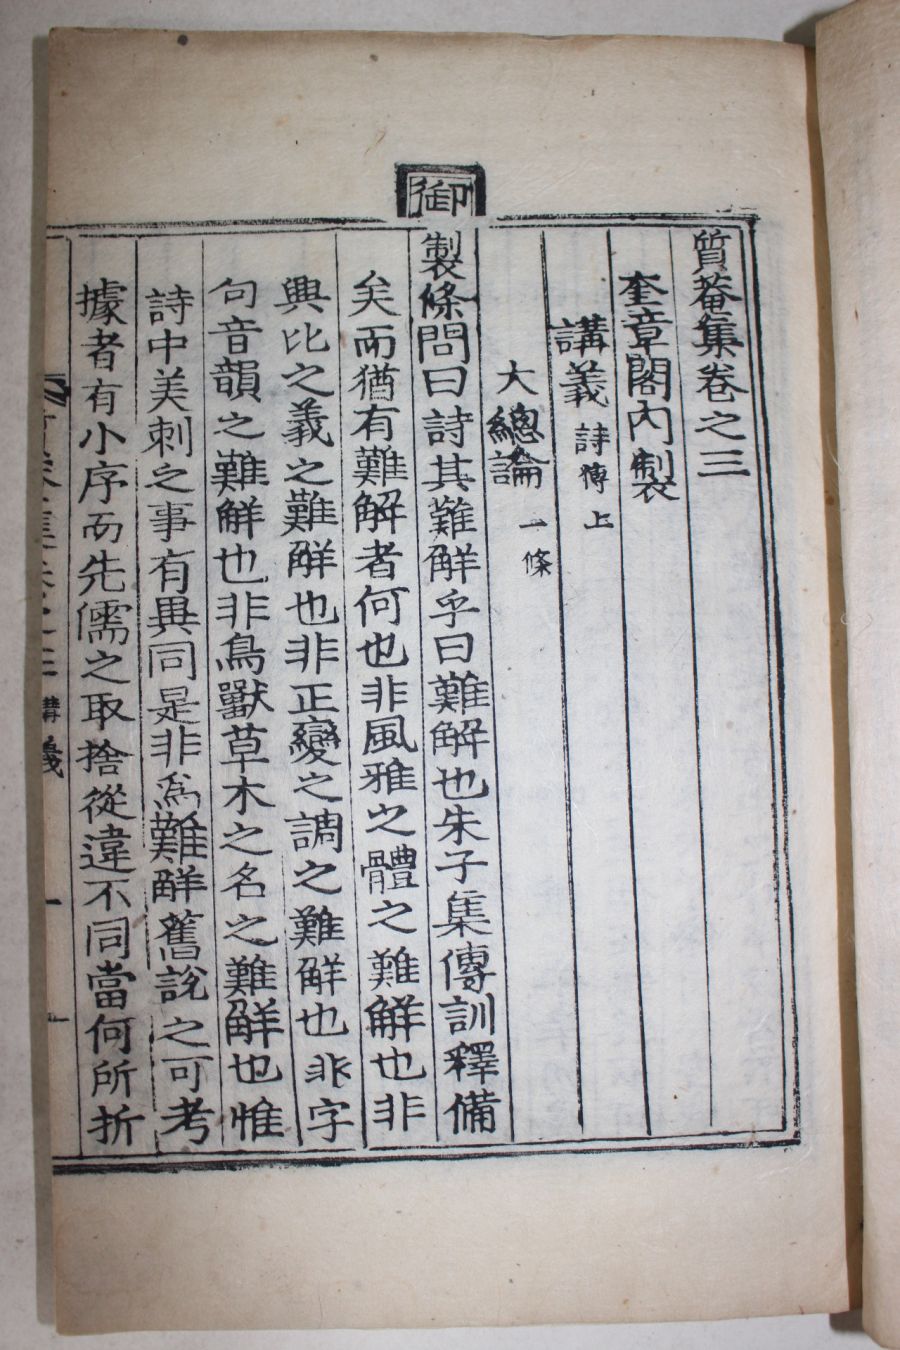 質菴集卷之三
奎章閣內製
講義 詩傳上
大總論 一條
御製條問曰詩其難解乎曰難解也朱子集傳訓釋備
矣而猶有難解者何也非風雅之體之難解也非
興比之義之難解也非正變之調之難解也非字
句音韻之難解也非鳥獸草木之名之難解也惟
詩中美刺之事有異同是非爲難解舊說之可考
據者有小序而先儒之取捨從違不同當何所折
卷之三 講義 一